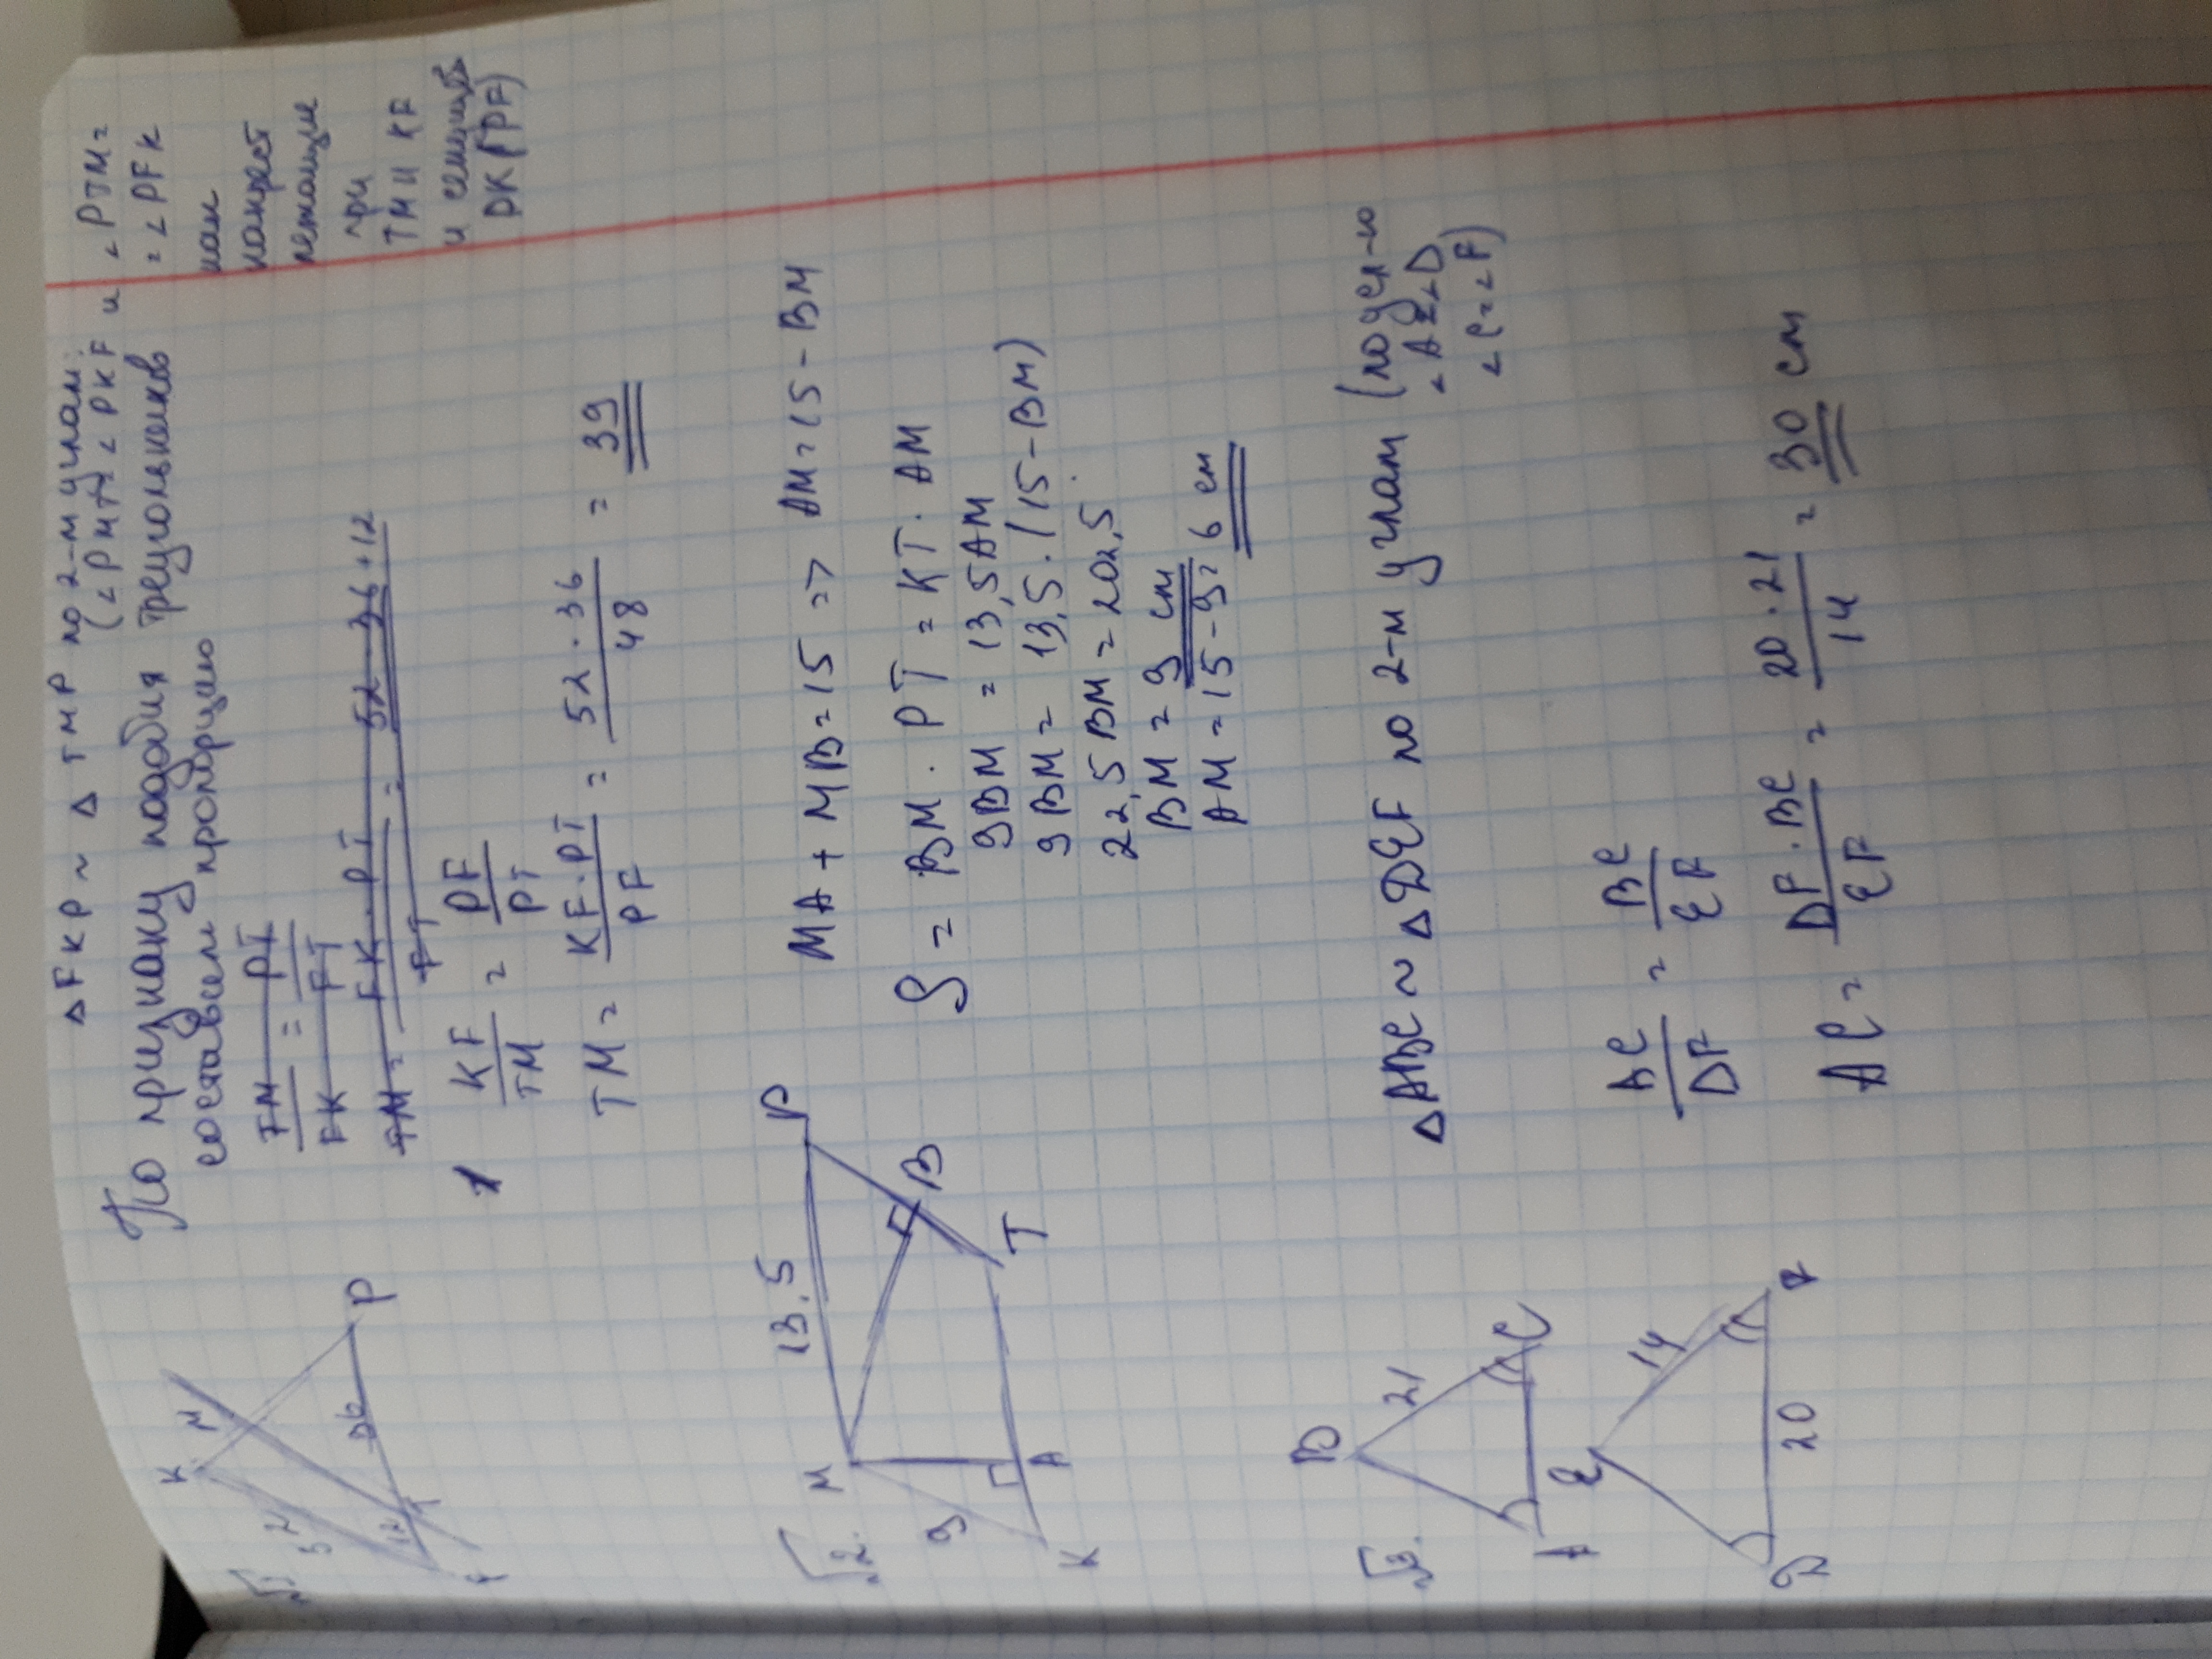 △FKP ~ △TMP по 2-м углам:
(∠PMT=∠PKF и ∠PTM=
=∠PFK
как
накрест
лежащие
при
TM || KF
и секущей
PK(PF)
По признаку подобия треугольников
составим пропорцию
TM/FK = PT/FT
TM = FK · PT/FT = 52 36+12
KF/TM = PF/PT
TM = KF · PT/PF = 52 · 36/48 = 39
√1
K
M
52
36
P
12
T
F
√2.
M
13,5
P
9
B
K
A
T
MA + MB = 15 => AM = 15 - BM
S = BM · PT = KT · AM
9BM = 13,5AM
9BM = 13,5 · (15 - BM)
22,5BM = 202,5
BM = 9 см
AM = 15 - 9 = 6 см
√3.
B
21
A
C
E
14
D
20
F
△ABC ~ △DEF по 2-м углам (по усл-ю
∠A=∠D
∠C=∠F)
AC/DF = BC/EF
AC = DF · BC/EF = 20 · 21/14 = 30 см